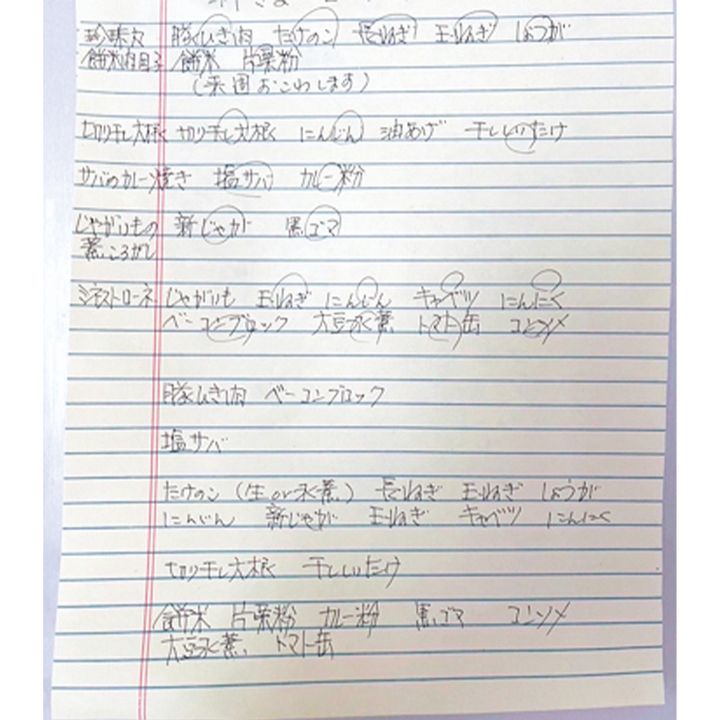 珍珠丸 豚ひき肉 たけのこ 長ねぎ 玉ねぎ しょうが
餅米団子 餅米 片栗粉
(来週おこわします)
切り干し大根 切り干し大根 にんじん 油あげ 干ししいたけ
サバのカレー焼き 塩サバ カレー粉
じゃがいもの 新じゃが 黒ゴマ
煮ころがし
ミネストローネ じゃがいも 玉ねぎ にんじん キャベツ にんにく
ベーコンブロック 大豆水煮 トマト缶 コンソメ
豚ひき肉 ベーコンブロック
塩サバ
たけのこ (生or水煮) 長ねぎ 玉ねぎ しょうが
にんじん 新じゃが 玉ねぎ キャベツ にんにく
切り干し大根 干ししいたけ
餅米 片栗粉 カレー粉 黒ゴマ コンソメ
大豆水煮 トマト缶